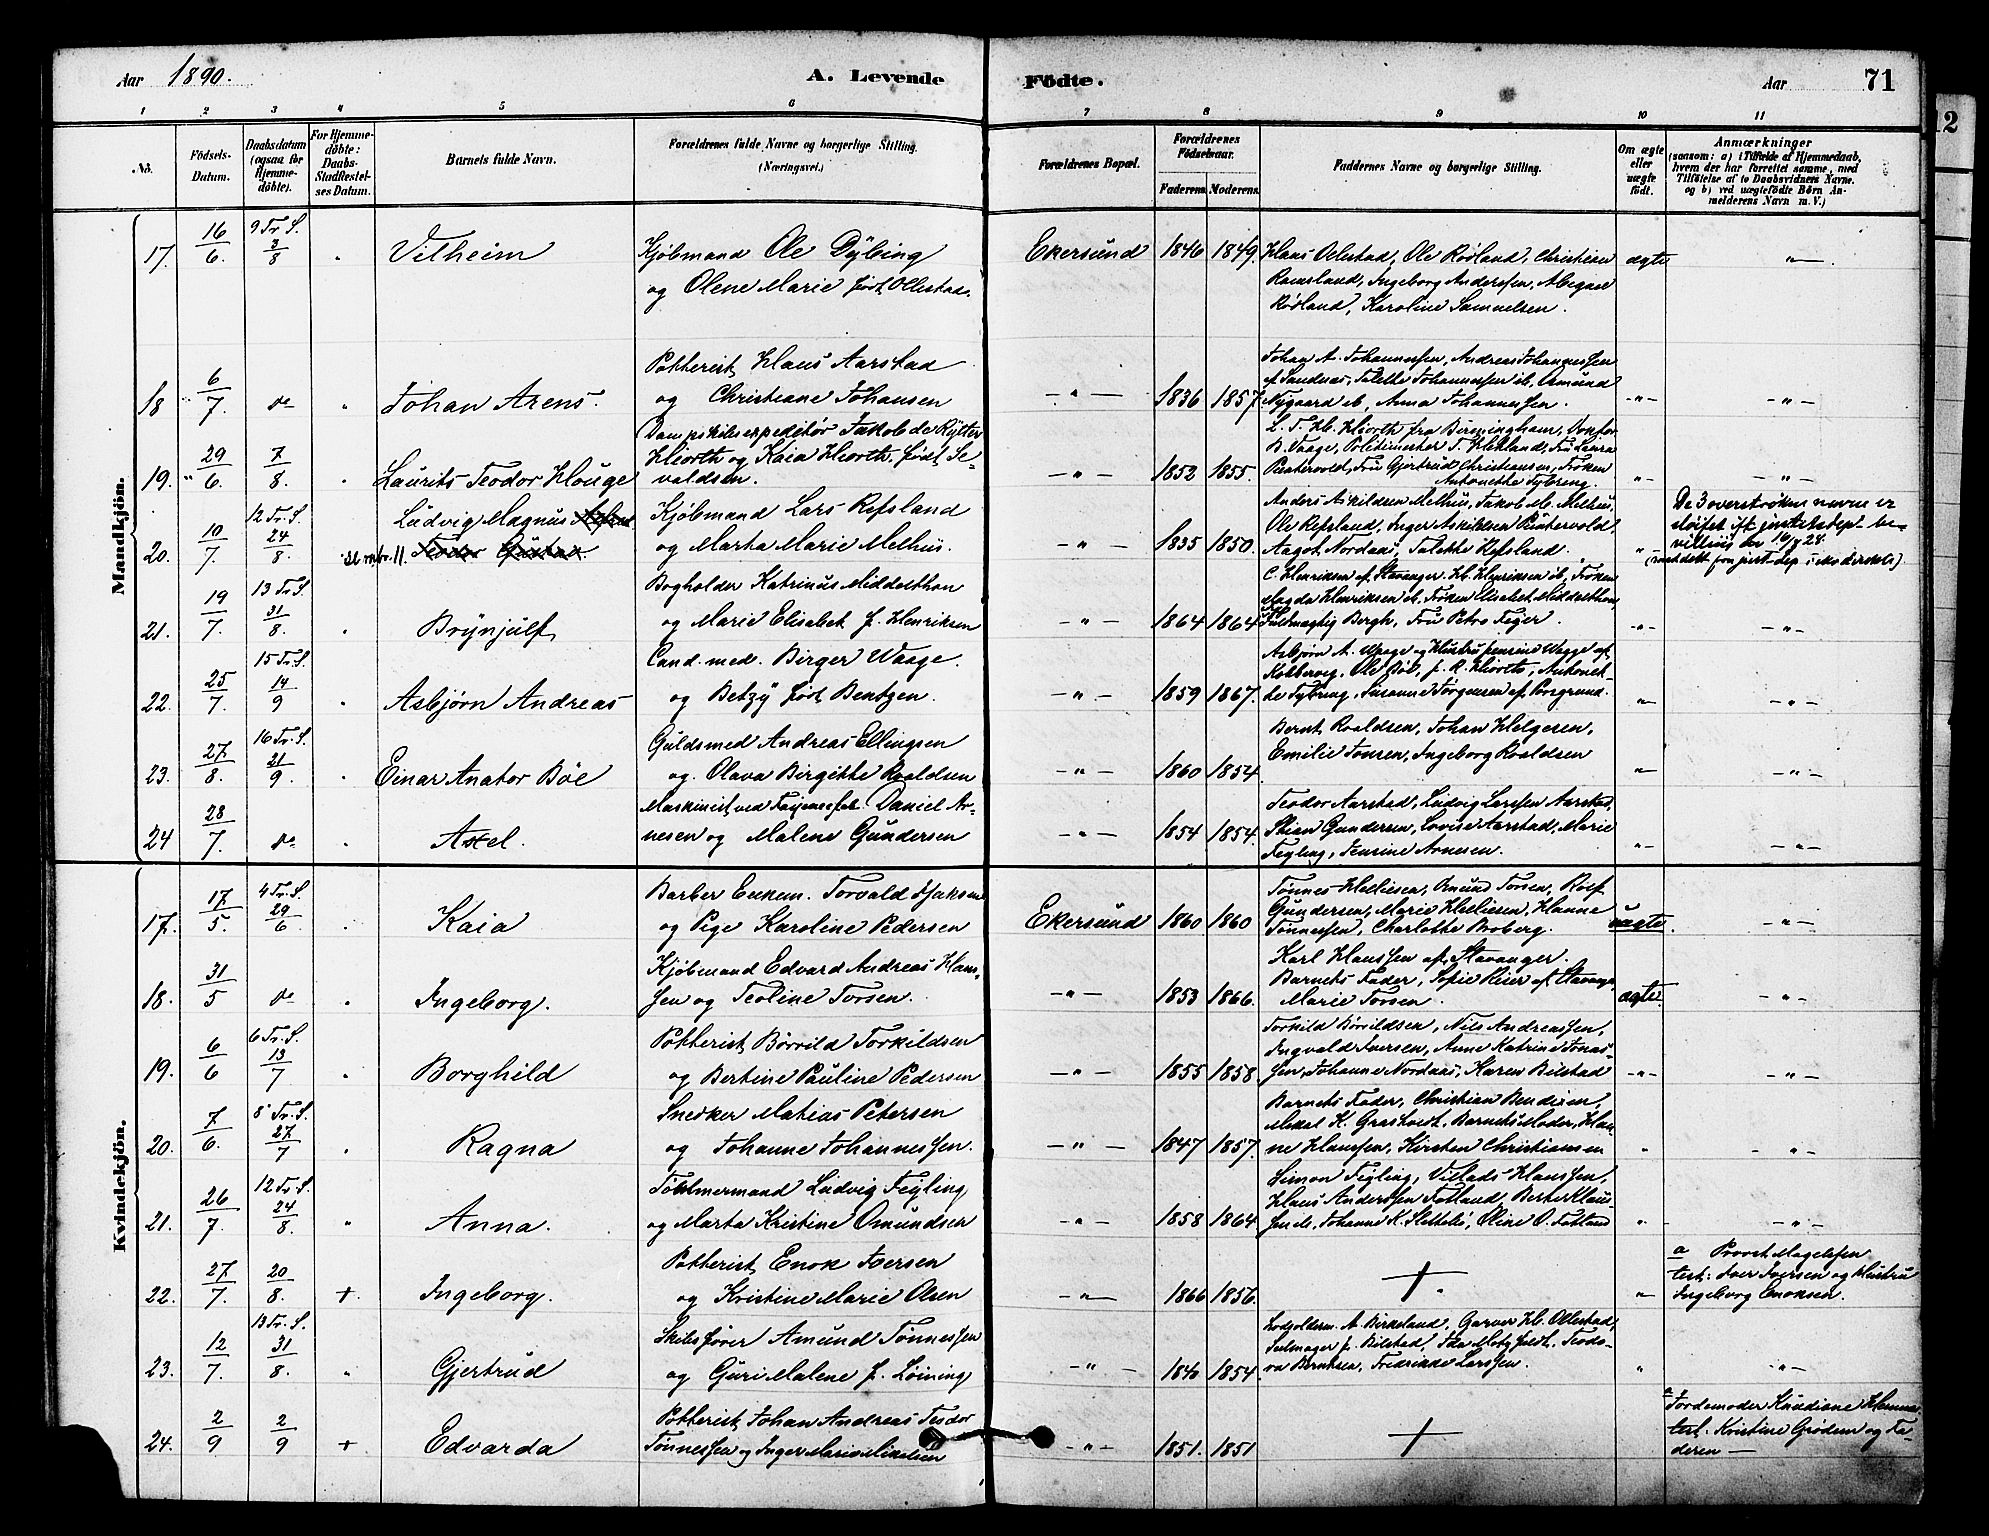 Aar 1890.
A. Levende
Födte.
Aar
71
12
1 2 3 4 5 6 7 8 9 10 11
No.
Födsels-Datum.
Daabsdatum (ogsaa for Hjemmedöbte).
For Hjemmedöbte: Daabs-Stadfæstelses Datum.
Barnets fulde Navn.
Forældrenes fulde Navne og borgerlige Stilling.
(Næringsvei.)
Forældrenes Bopæl.
Forældrenes Födselsaar.
Faderens. Moderens.
Faddernes Navne og borgerlige Stilling.
Om ægte eller uægte födt.
Anmærkninger
(saasom: a) i Tilfælde af Hjemmedaab,
hvem der har forrettet samme, med
Tilföielse af to Daabsvidners Navne,
og b) ved uægtefödte Börn An-
melderens Navn m. V.)
Mandkjön.
17. 16/6. 9 Tr. S. 3/8 " Vilheim
Kjöbmand Ole Dybing
og Olene Marie født Ollestad.
Ekersund 1846 1849.
Klaus Ollestad, Ole Rødland, Christian
Ramsland, Ingeborg Anderssen, Abigael
Rødland, Karoline Samuelsen.
ægte "
18 6/7. do " Johan Arens.
Potterist Klaus Aarstad
og Christiane Johansen
" 1836 1857.
Johan A. Johannessen, Andreas Johannessen
af Sandnæs, Talette Johannessen ib, Osmund
Nygaard ib, Anna Johannessen.
" "
19. 29/6. 7/8. " Laurits Teodor Kloüge
Dampskibsexpeditør Jakob de Rytter
Kiorth og Kaia Kiorth. født Se-
valdsen.
" 1852 1855.
L. T. Kb. Kiorth fra Birmingham, Doktor
B. Vaage, Politimester T. Hetland, Frü Laura
Puntervold, Frü Gjertrüd Christiansen, Frøken
Antonette Tybring.
" "
20. 10/7. 12 Tr. S. 24/8. Lüdvig Magnus
Teodor Güstav
Kjöbmand Lars Refsland
og Marta Marie Melhüs
" 1835 1850.
Anders Askildsen Melhüs, Jakob M. Melhüs,
Ole Refsland, Inger Askildsen Püntervold,
Aagot Nordaas, Talette Refsland.
"
De 3 overstrøkne navne er
sløifet ift justitsdept be-
villing av 16/7 24.
21. 19/7. 13 Tr. S. 31/8. " Brynjülf
Bogholder Katrinüs Middelthon
og Marie Elisabet f. Henriksen
" 1864 1864
C. Henriksen af Stavanger. Kb. Henriksen ib, Frøken
Magda Henriksen ib. Frøken Elisabet Middelthon
Füldmægtig Bergh, Früe Petra Feyer.
" "
22. 25/7. 15 Tr. S. 14/9 " Asbjørn Andreas
Cand. med. Birger Waage.
og Betzÿ født Bentzen.
" 1859 1867.
Asbjørn A. Waage og Hüstrü Jensine Waage af
Kolbervig, Ole Bøe, f. R. Kiorth, Antonet-
te Tybring, Susanne Jørgensen af Porsgrund.
" "
23. 27/8. 16 Tr. S. 21/9. " Einar Anator Böe
Güldsmed Andreas Ellingsen
og. Olava Birgitte Roaldsen
" 1860 1854.
Bernt Roaldsen, Johan Helgesen,
Emilie Tonsen, Ingeborg Roaldsen
" "
24 28/7. do " Axel.
Maskinist ved Fajancefab. Daniel Ar-
nesen og Malene Gündersen
" 1854 1854.
Teodor Aarstad, Lüdvig Larssen Aarstad,
Stian Gündersen, Lovise Aarstad, Marie
Feyling, Jensine Arnesen.
" "
Kvindekjön.
17. 17/5. 4 Tr. S. 29/6 Kaia
Barber Enkem. Torvald Isaksen
og Pige Karoline Pedersen
Ekersünd 1860 1860
Tønnes Helliesen, Omünd Torsen, Rolf
Gündersen, Marie Helliesen, Hanne
Tønnessen, Charlotte Broberg.
üægte. "
18. 31/5 do " Ingeborg.
Kjöbmand Edvard Andreas Hans-
sen og Teoline Torsen.
" 1853 1866.
Karl Hanssen af Stavanger.
Barnets Fader, Sofie Reier af Stavanger
Marie Torsen.
ægte. "
19. 6/6 6 Tr. S. 13/7 " Borghild
Potterist Börrild Torkildsen
og Bertine Pauline Pedersen
" 1855 1858.
Torkild Børrildsen, Nils Andreassen,
Ingvald Iversen, Anne Katrine Jonas-
sen, Johanne Nordaas, Karen Bilstad
" "
20. 7/6. 8 Tr. S. 27/7 " Ragna
Snedker Matias Petersen
og Johanne Johannessen.
" 1847 1857.
Barnets Fader, Christian Bendixen,
Mikal K. Graskvedt, Barnets Moder, Han-
ne Hanssen, Kirsten Christiansen
" "
21. 26/7. 12 Tr. S. 24/8. " Anna.
Tømmermand Lüdvig Feyling
og Marta Kristine Omündsen
" 1858 1864.
Simon Feyling, Villads Klaussen,
Klaus Anderssen Fotland, Berte Klaus-
sen ib, Johanne K. Slettebö, Oline O. Fotland
" "
22. 27/7. 20/8. + Ingeborg.
Potterist Enok Iversen
og Kristine Marie Olsen
" 1866 1856.
+
"
a Provst Magelssen
test: Iver Iversen og Hüstrü
Ingeborg Enoksen.
23. 12/7. 13 Tr. S. 31/8. " Gjertrüd
Skibsfører Amünd Tønnessen
og Güri Malene f. Løining
" 1840 1854
Lodsolderm. A. Birkeland, Garver Kb. Ollestad,
Seilmager f. Bilstad, Ida Motzfeldt, Teodo-
ra Berntsen, Fredrikke Larssen.
" "
24. 2/9 2/9 + Edvarda
Potterist Johan Andreas Teodor
Tønnessen og Inger Marie Mikalsen
" 1851. 1851
+
a Jordemoder Knüdiane
test. Kristine Grødem og Fa-
deren —